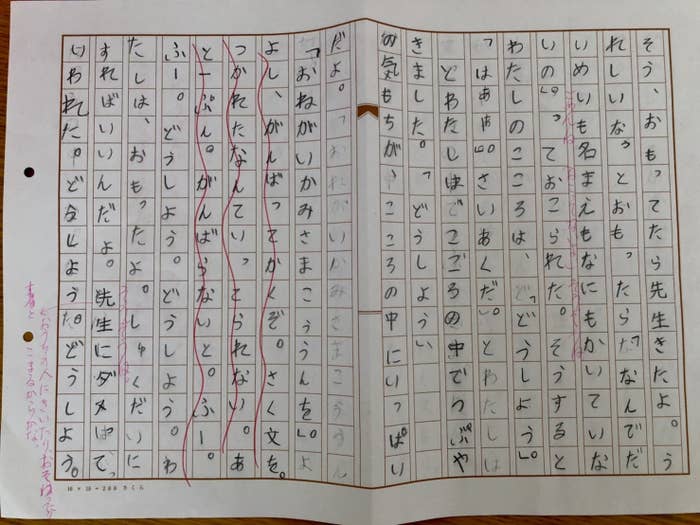 そう、おもってたら先生きたよ。う
れしいな。」とおもったら「なんでだ
いめいも名まえもなにもかいていな
いの。」っておこられた。そうすると
わたしのこころは、「どうしよう。」
「はぁはぁ。さいあくだ。」とわたしは
とわたしはこごろの中でつぶや
きました。「どうしよう、
の気もちが、こころの中にいっぱい
だよ。「おねがいかみさまこううん
「おねがいかみさまこううんを。」よ
よし、がんばってかくぞ。さく文を。
つかれたなんていってられない。あ
と一ぷん。がんばらないと。ふー。
ふー。どうしよう。どうしよう。わ
たしは、おもったよ。しゅくだいに
すればいいんだよ。先生にダメはて、
いわれた。どうしよう。どうしよう。
10×20=200